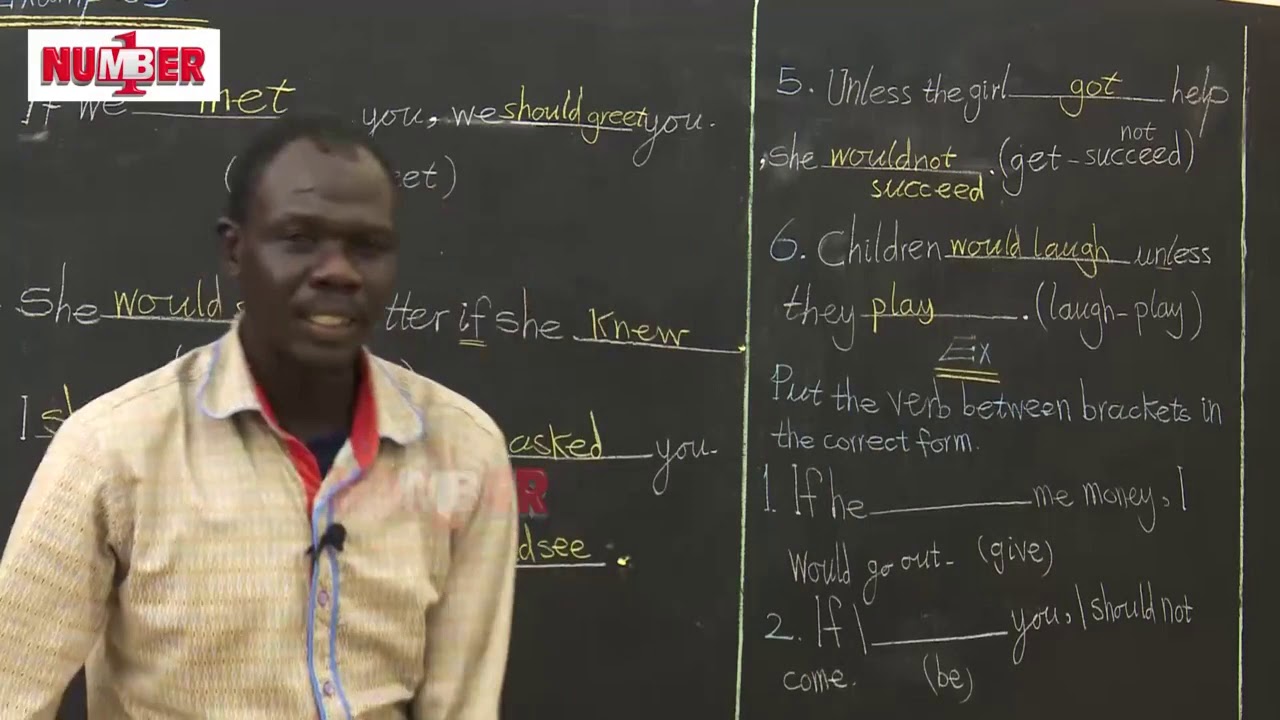 NUMBER 1
If we met you, we should greet you.
eet)
She would tter if she knew
I sh asked you.
dsee.
5. Unless the girl got help
, she would not succeed. (get - not succeed)
6. Children would laugh unless
they play. (laugh - play)
Ex
Put the verb between brackets in
the correct form.
1. If he me money, I
would go out. (give)
2. If I you, I should not
come. (be)
NUMBER